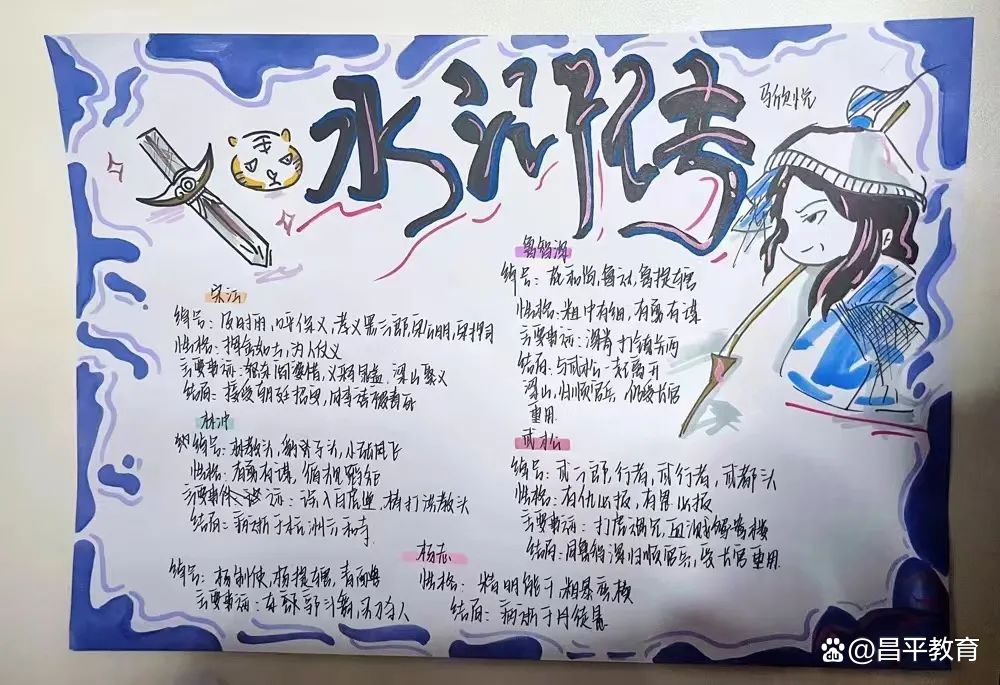 水浒传
马欣悦
宋江
绰号：及时雨，呼保义，孝义黑三郎，宋公明，宋押司
性格：为人仗义
主要事迹：怒杀阎婆惜，义释晁盖，梁山聚义
结局：接受朝廷招安，
林冲
绰号：林教头，豹子头，小张飞
性格：有勇有谋，循规蹈矩
主要事迹：误入白虎堂，棒打洪教头
结局：病逝于杭州六和寺
鲁智深
绰号：花和尚，鲁达，鲁提辖
性格：粗中有细，有勇有谋
主要事迹：拳打镇关西
结局：与武松一起离开
梁山，归顺官兵，仍受长官
重用
武松
绰号：武二郎，行者，武行者，武都头
性格：有仇必报，有恩必报
主要事迹：打虎，血溅鸳鸯楼
结局：同鲁智深归顺官兵，受长官重用
杨志
绰号：杨制使，杨提辖，青面兽
性格：精明能干，粗暴
主要事迹：东郭斗武，卖刀杀人
结局：病逝于丹徒县
@昌平教育